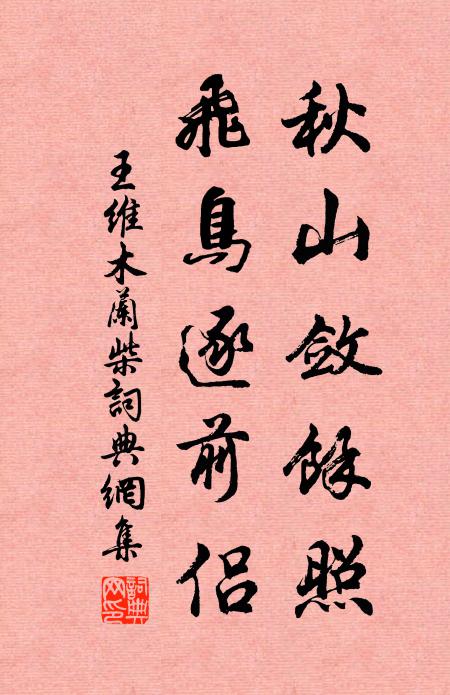 秋山斂餘照
飛鳥逐前侶
王維木蘭柴詞典網集
詞典
网印